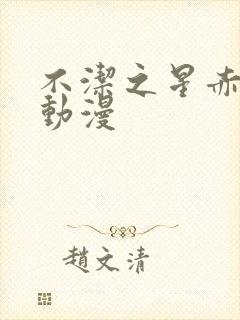 不潔之星赤
動漫
趙文清